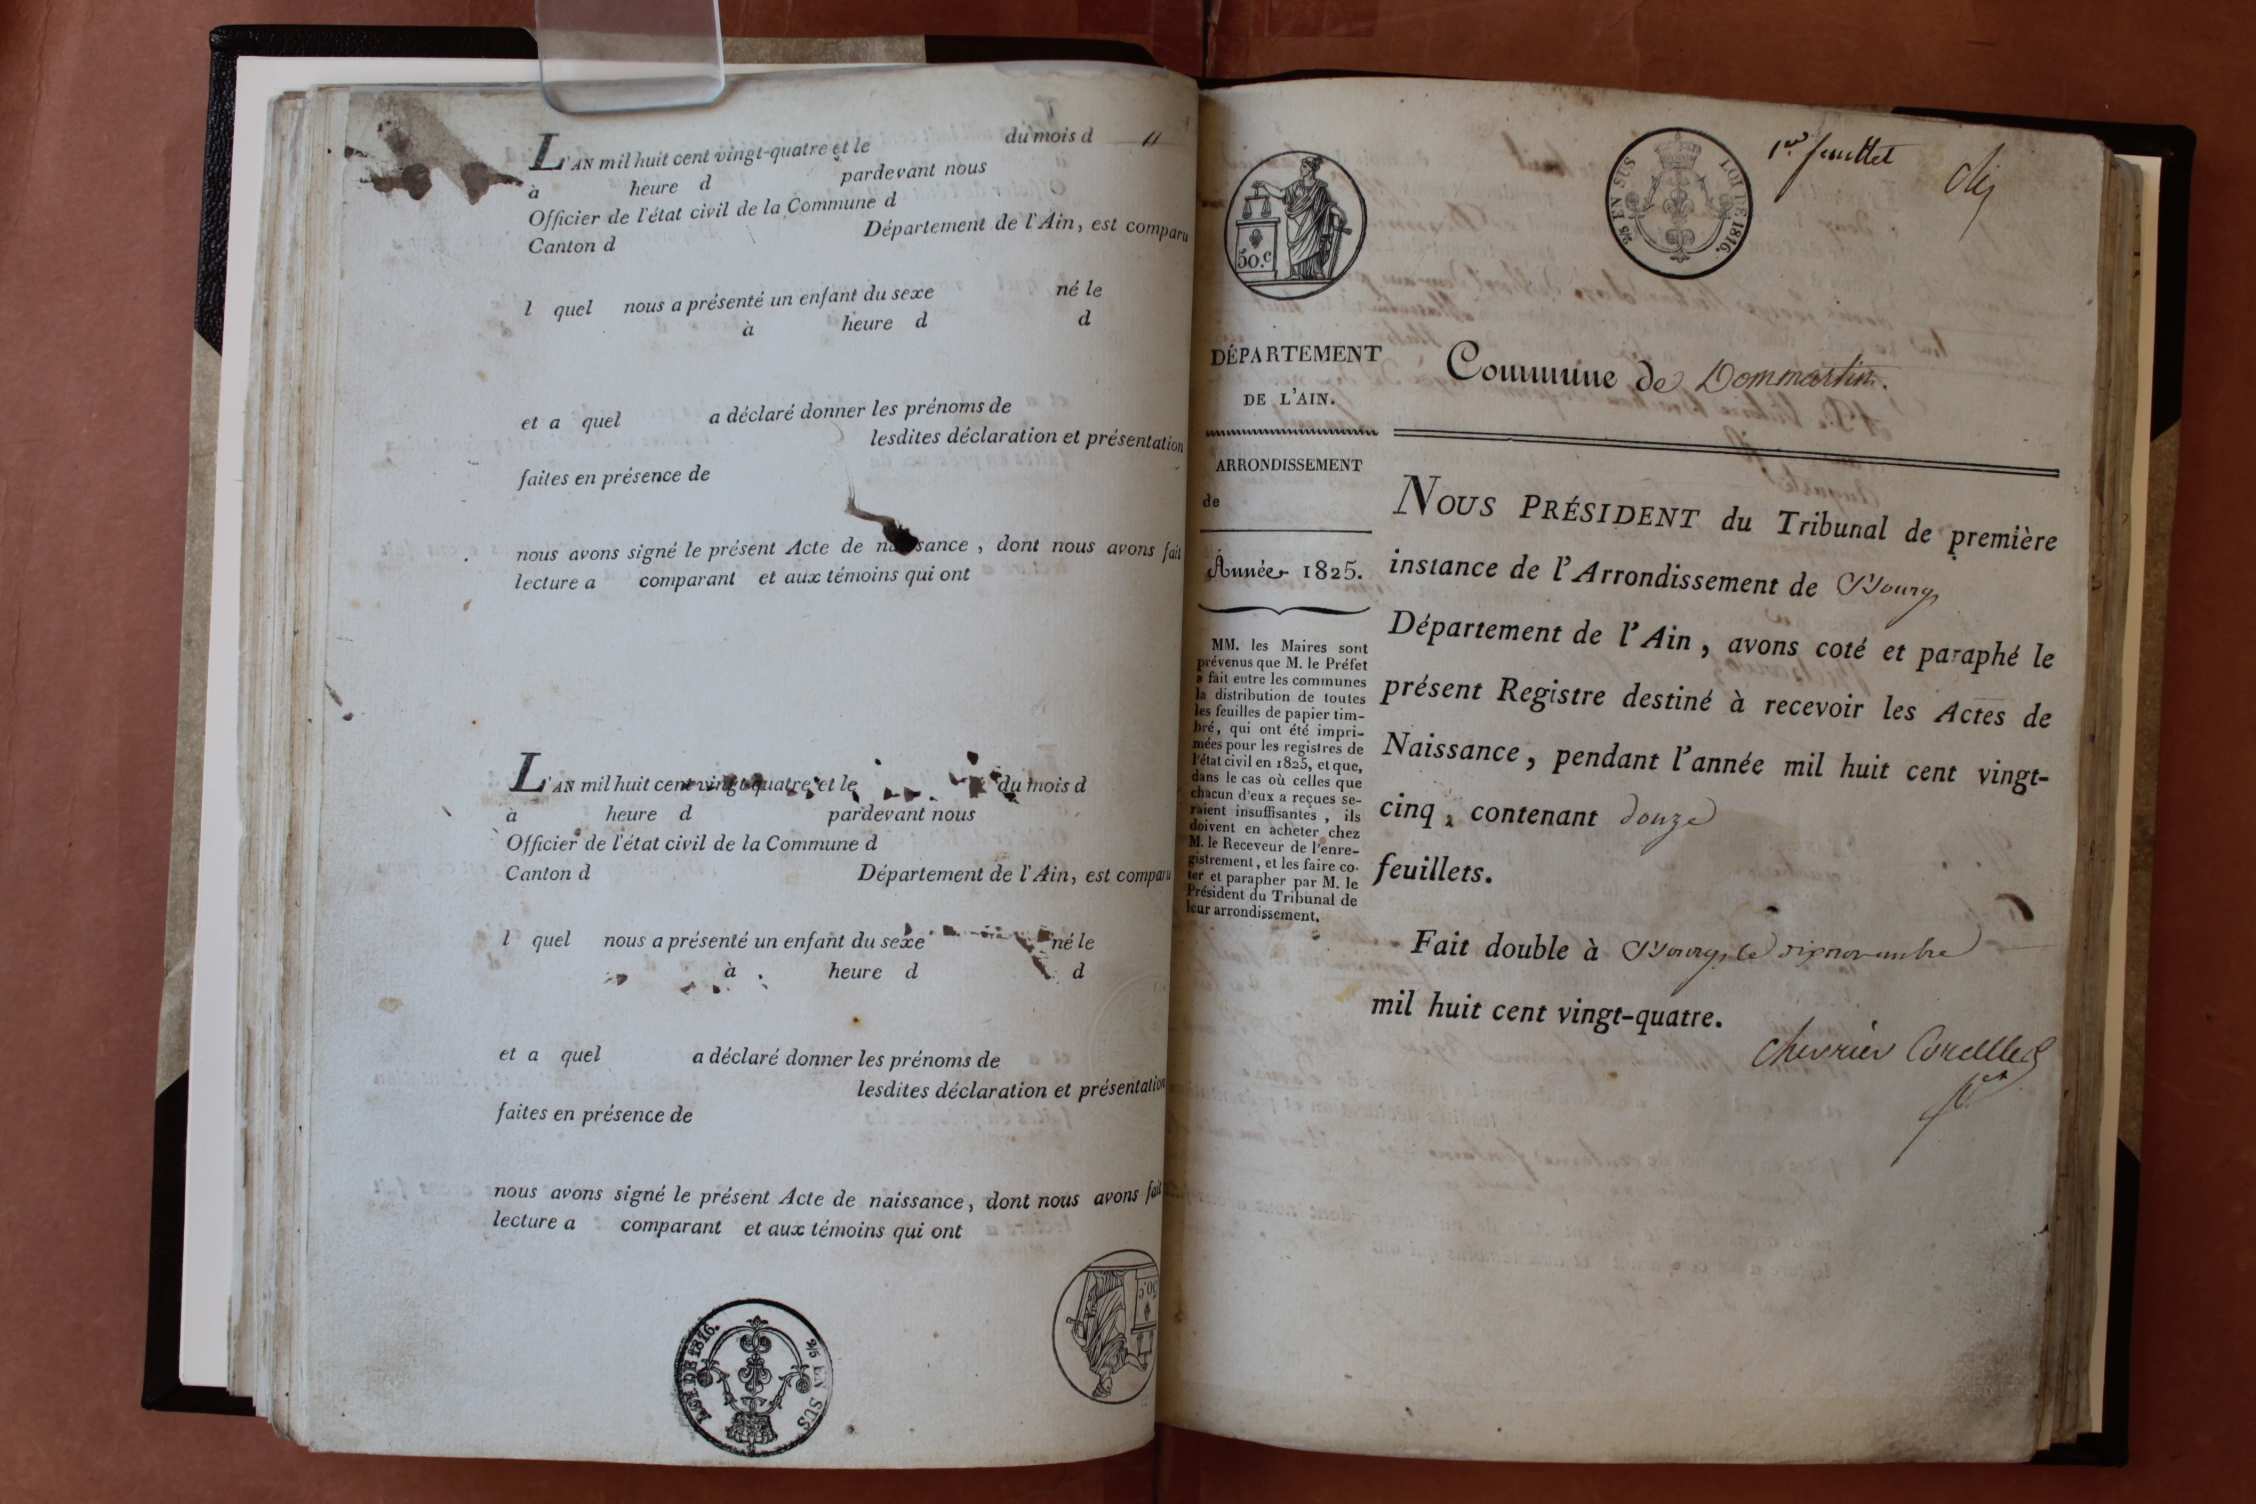 L'AN mil huit cent vingt-quatre et le du mois d 11
à heure d pardevant nous
Officier de l'état civil de la Commune d
Canton d Département de l'Ain, est comparu
l quel nous a présenté un enfant du sexe né le
à heure d d
et a quel a déclaré donner les prénoms de
lesdites déclaration et présentation
faites en présence de
nous avons signé le présent Acte de naissance, dont nous avons fait
lecture a comparant et aux témoins qui ont
L'AN mil huit cent vingt-quatre et le du mois d
à heure d pardevant nous
Officier de l'état civil de la Commune d
Canton d Département de l'Ain, est comparu
l quel nous a présenté un enfant du sexe né le
à heure d d
et a quel a déclaré donner les prénoms de
lesdites déclaration et présentation
faites en présence de
nous avons signé le présent Acte de naissance, dont nous avons fait
lecture a comparant et aux témoins qui ont
LOI DE 1816.
2/5 EN SUS
50.C
50.c
2/5 EN SUS
LOI DE 1816.
1er feuillet
DÉPARTEMENT
DE L'AIN.
ARRONDISSEMENT
de
Année 1825.
MM. les Maires sont
prévenus que M. le Préfet
a fait entre les communes
la distribution de toutes
les feuilles de papier tim-
bré, qui ont été impri-
mées pour les registres de
l'état civil en 1825, et que,
dans le cas où celles que
chacun d'eux a reçues se-
raient insuffisantes, ils
doivent en acheter chez
M. le Receveur de l'enre-
gistrement, et les faire co-
ter et parapher par M. le
Président du Tribunal de
leur arrondissement.
Commune de Dommartin.
NOUS PRÉSIDENT du Tribunal de première
instance de l'Arrondissement de Bourg
Département de l'Ain, avons coté et paraphé le
présent Registre destiné à recevoir les Actes de
Naissance, pendant l'année mil huit cent vingt-
cinq, contenant douze
feuillets.
Fait double à Bourg, le six novembre
mil huit cent vingt-quatre.
Chevrier Corcelles